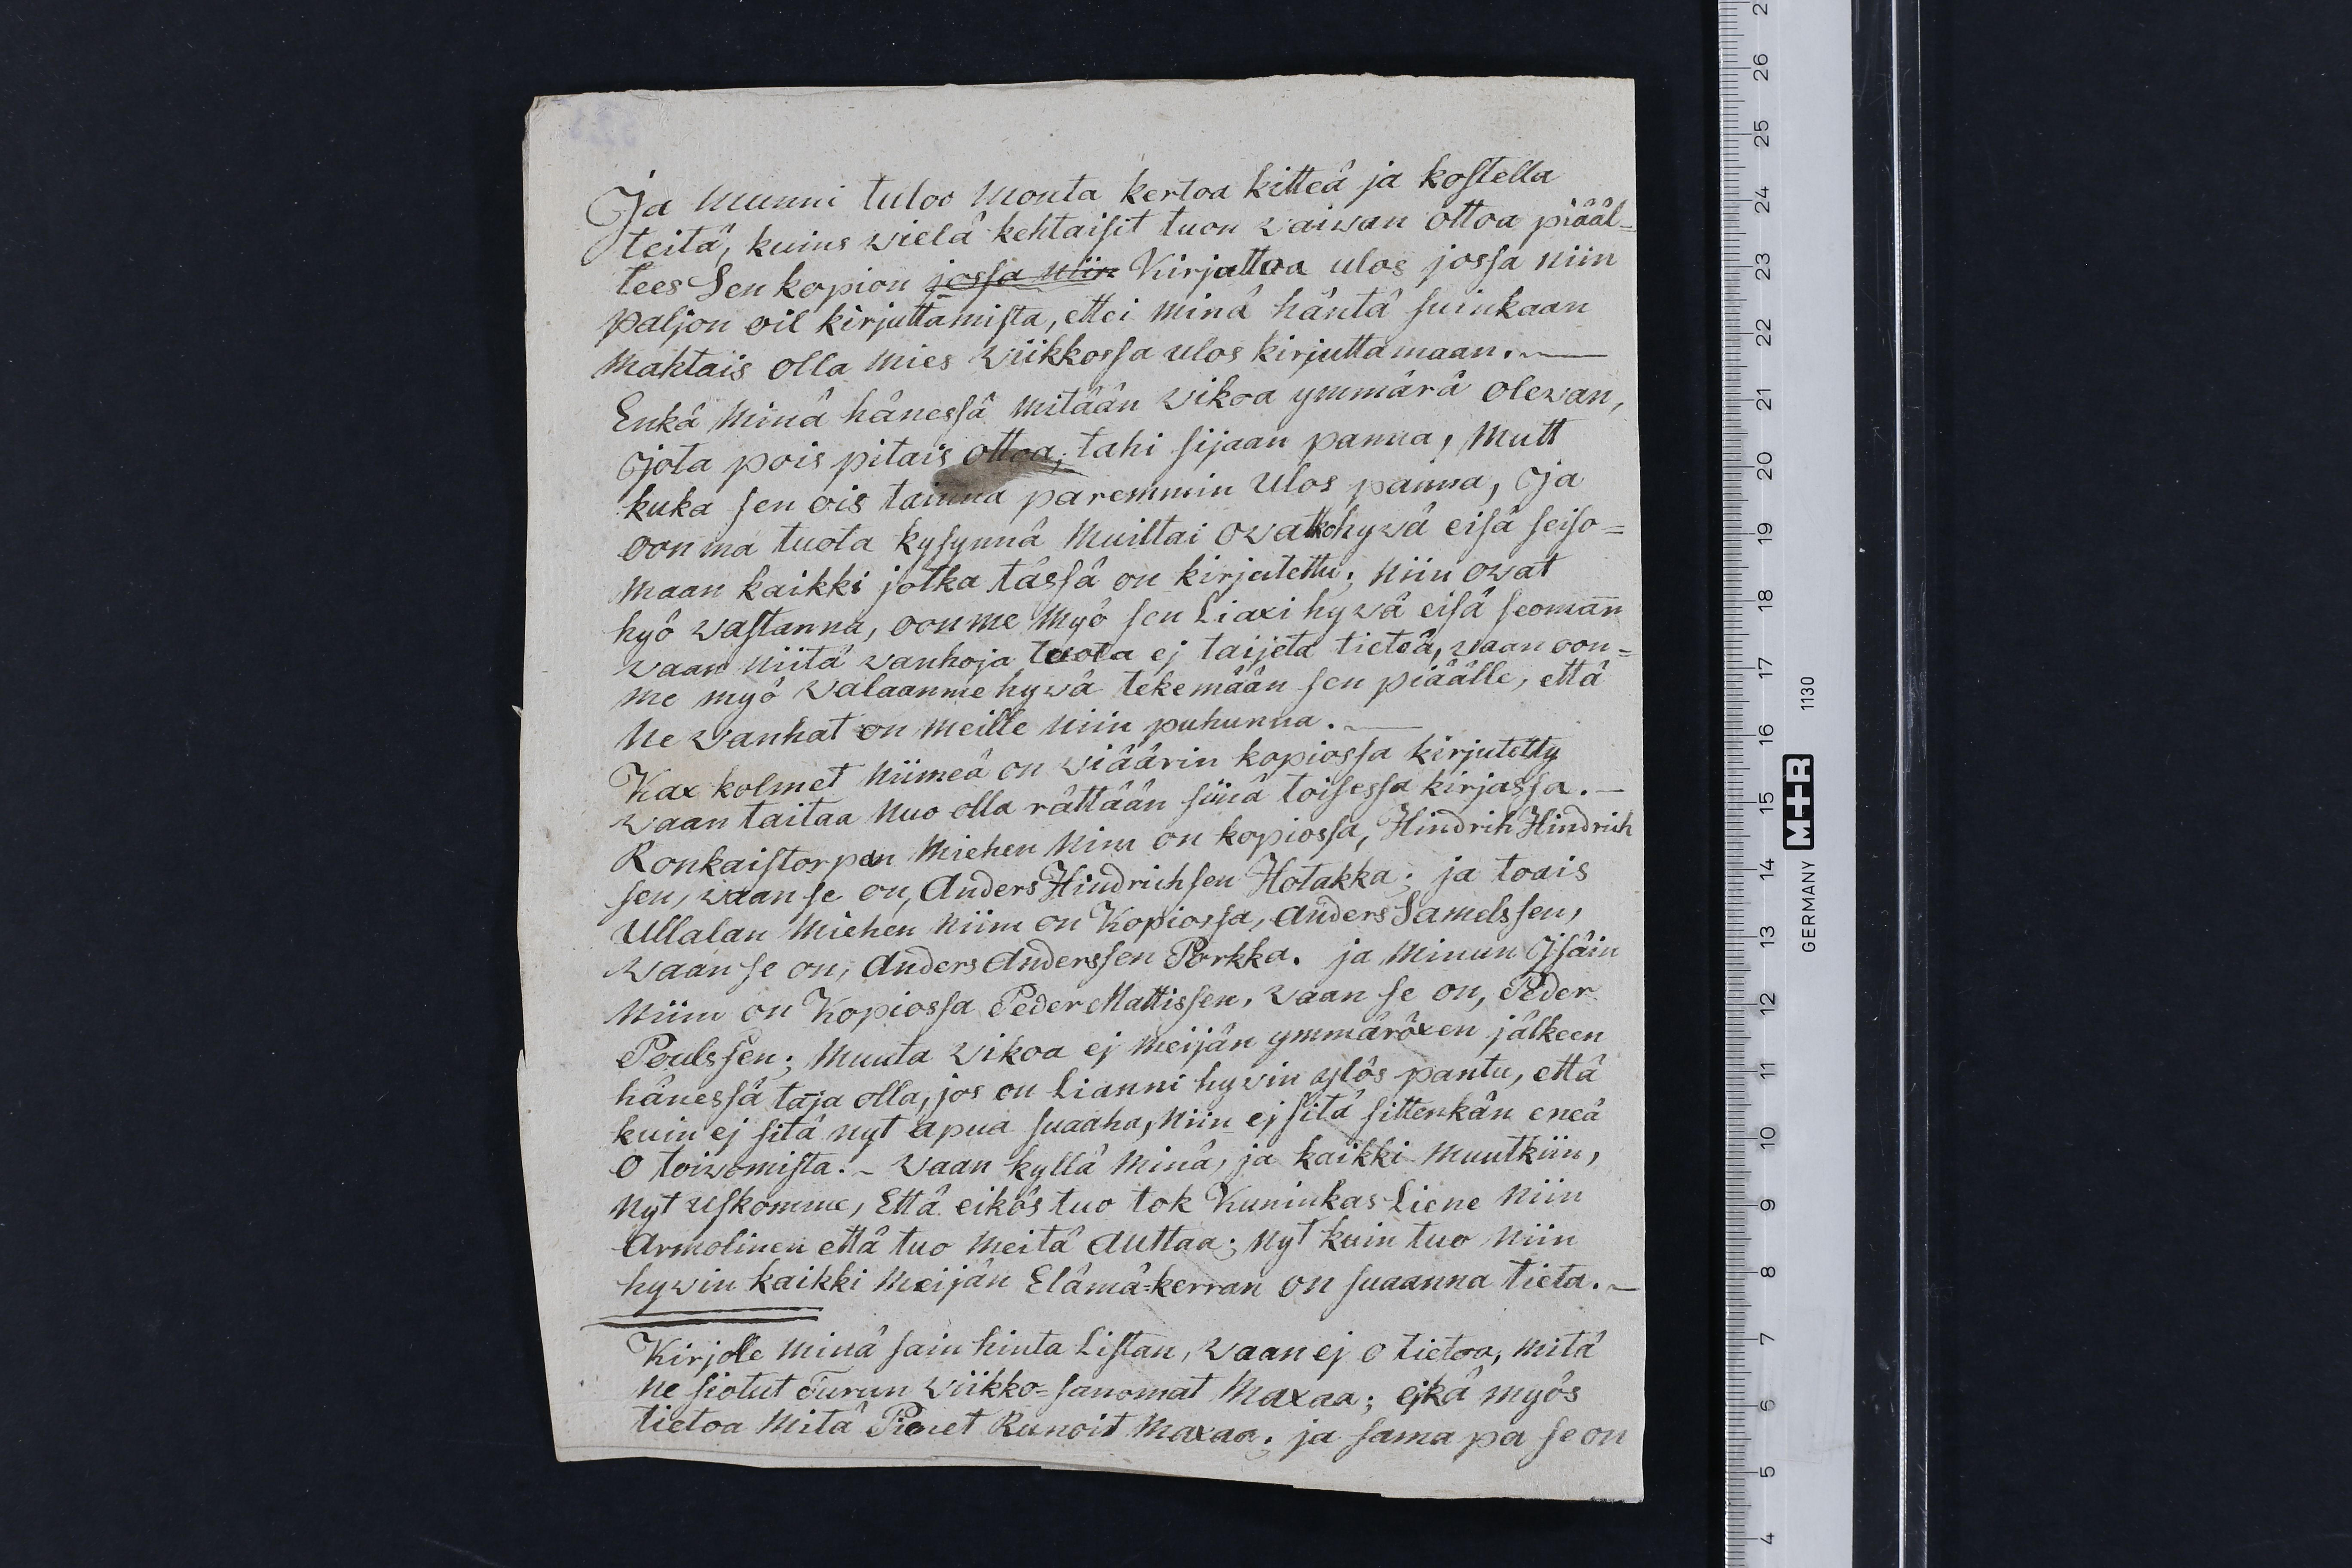 Ja Munni tuloo Monta kertoa kitteä ja kostella
teitä, kuins wielä kehtaisit tuon waiwan ottoa piääl=
tees Sen kopion jossa niin Kirjuttoa ulos jossa niin
paljon oil kirjuttamista, ettei Minä häntä suinkaan
Mahtais olla Mies Wiikkossa ulos kirjuttamaan.
Enkä Minä hänessä Mitään Wikoa ymmärä olewan,
Jota pois pitais ottoa, tahi sijaan panna, Mutt
kuka sen ois tainna paremmin Ulos panna, Ja
oon ma tuota kysynnä Muiltai owatko hywä eisä seiso=
Maan kaikki jotka tässä on kirjutettu; Niin owat
hyö Wastanna, oonme Myö sen Liaxi hywä eisä seoman
Waan Niitä Wanhoja tuota ej taijeta tieteä, waan oon=
me myö Walaanme hywä tekemään sen piäälle, että
Ne Wanhat on Meille Niin puhunna.
Kax kolmet Niimeä on Wiäärin kopiossa kirjutetty
Waan taitaa Nuo olla rättään siinä toisessa kirjassa.
Ronkaistorpan Miehen Nim on kopiossa, Hindrih Hindrich
sen, Waan se on, Anders Hindrichsen Hotakka; ja toais
Ullalan Miehen Niim on Kopiossa, Anders Samelssen,
Waan se on, Anders Anderssen Porkka. ja Minun Isäin
Niim on Kopiossa Peder Mattissen, Waan se on, Peder
Poulssen; Muuta Wikoa ej Meijän ymmäröxen jälkeen
hänessä taja olla, jos on Lianni hywin ylös pantu, että
kuin ej sitä nyt apua suaaha, Niin ej sitä sittenkän eneä
O toiwomista. Waan kyllä Minä, ja kaikki Muutkiin,
Nyt Uskomme, Että eikös tuo tok Kuninkas Liene Niin
Armolinen että tuo Meitä Auttaa; Nyt kuin tuo Niin
hywin kaikki Meijän Elämä-kerran on suaanna tieta.
Kirjolle Minä sain hinta Listan, Waan ej o tietoa, Mitä
Ne siotut Turun Wiikko=sanomat Maxaa; ejkä Myös
tietoa Mitä Pienet Runoit Maxaa; ja sama pa se on
2
26
25
24
23
22
21
20
19
18
17
16
15
14
13
12
11
10
9
8
7
6
5
4
GERMANY M+R 1130